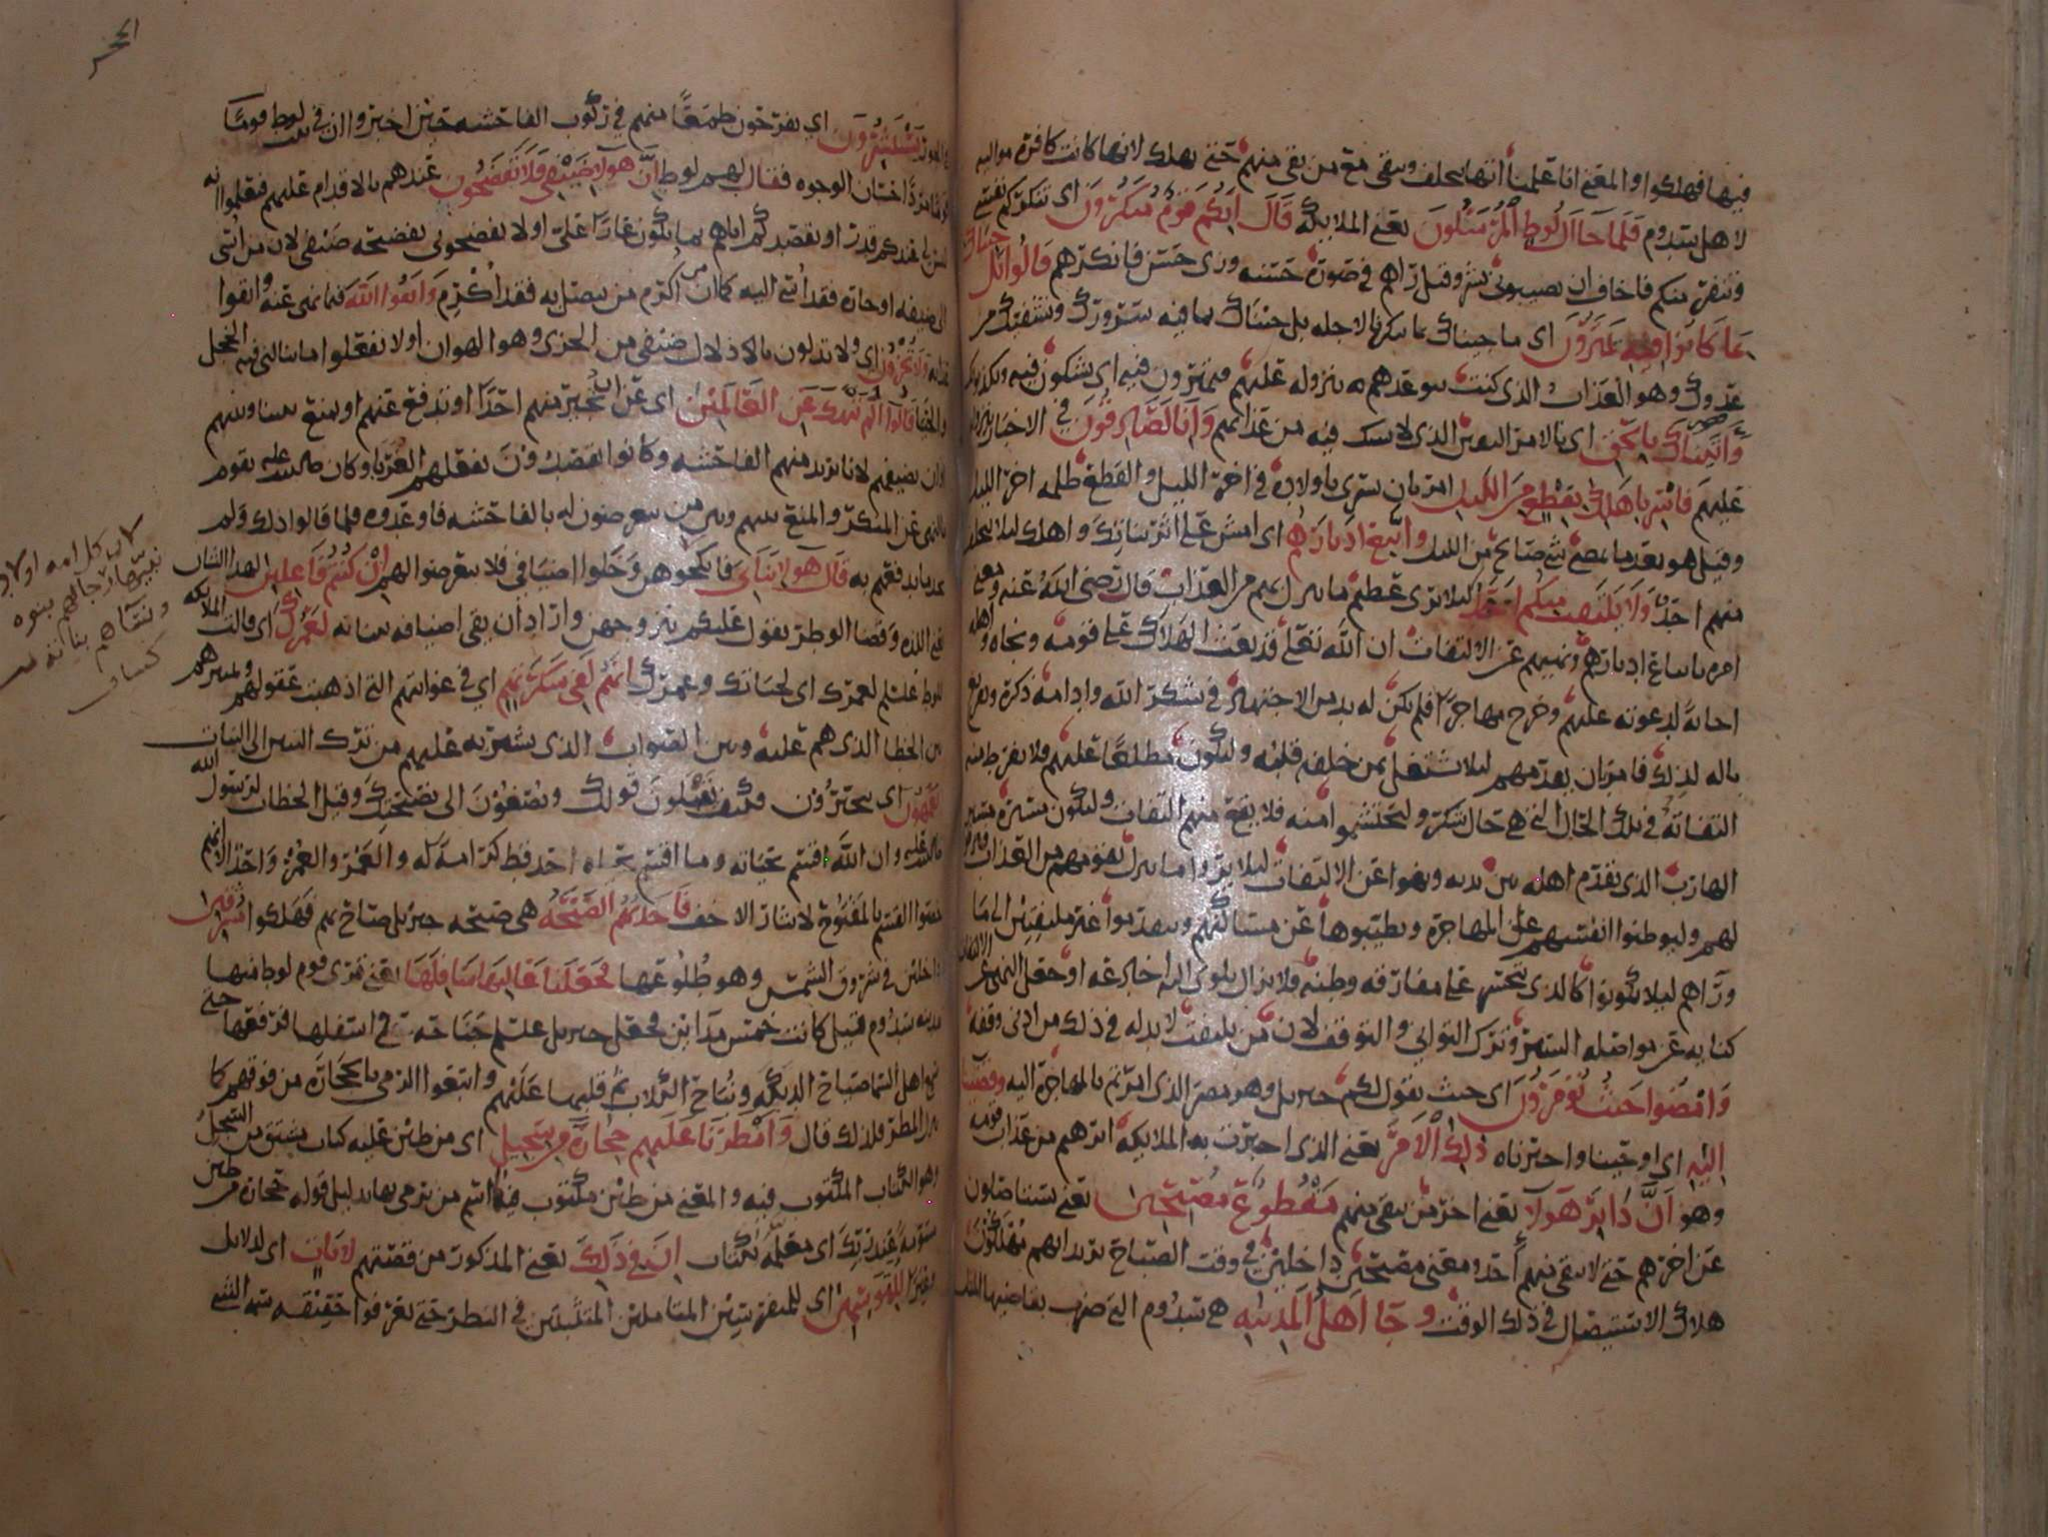 فيها فهلكوا والمعنى انا علمنا انها تخلف وتبقى مع من بقي منهم حتى تهلك لانها كانت كافرة مواليه
لاهل سدوم فلما جا ال لوط المرسلون يعني الملايكة قال انكم قوم منكرون اي تنكركم نفسي
وتنفر منكم فاخاف ان تصيبوني بشر وقيل راهم في صورة حسنه وزي حسن فانكرهم قالوا بل جيناك
بما كانوا فيه يمترون اي ما جيناك بما تنكرنا لاجله بل جيناك بما فيه سرورك وتشفيك من
عدوك وهو العذاب الذي كنت توعدهم به بنزوله عليهم فيمترون فيه اي يشكون فيه ويكذبونك
واتيناك بالحق اي بالامر اليقين الذي لا شك فيه من عذابهم وانا لصادقون في الاخبار بنزوله
عليهم فاسر باهلك بقطع من الليل امر بان يسري باولاده في اخر الليل والقطع ظلمه اخر الليل
وقيل هو بعد ما يمضي شي صالح من الليل واتبع ادبارهم اي امش على اثر بناتك واهلك ليلا يتخلف
منهم احد ولا يلتفت منكم احد ليلا يرى عظيم ما ينزل بهم من العذاب قال رضي الله عنه ومعنى
امره باتباع ادبارهم ونهيهم عن الالتفات ان الله تعالى قد بعث الهلاك على قومه ونجاه واهله
اجابة لدعوته عليهم وخرج مهاجرا فلم يكن له بد من الاجتهاد في شكر الله وادامه ذكره وتفريغ
باله لذلك فامر بان يقدمهم ليلا يشتغل بمن خلفه قلبه وليكون مطلعا عليهم فلا يفرط منه
التفاته في تلك الحال التي هي حال شكر وليحتشموا منه فلا يقع منهم التفات وليكون سيره مسير
الهارب الذي يقدم اهله بين يديه ونهوا عن الالتفات ليلا يروا ما ينزل بقومهم من العذاب فيرقوا
لهم وليوطنوا انفسهم على المهاجرة ويطيبوها عن مساكنهم ويمضوا غير ملتفتين الى ما
وراهم ليلا يكونوا كالذي يتحسر على مفارقه وطنه فلا يزال يلوي اليه اخادعه او جعل النهي عن الالتفات
كنايه عن مواصله السير وترك التواني والتوقف لان من يلتفت لا بد له في ذلك من ادنى وقفه
وامضوا حيث تومرون اي حيث يقول لكم جبريل وهو مصر الذي امرتم بالمهاجرة اليه وقضينا
اليه اي اوحينا واخبرناه ذلك الامر يعني الذي اخبرت به الملايكه ابرهيم من عذاب قومه
وهو ان دابر هولا يعني اخر من بقي منهم مقطوع مصبحين يعني يستاصلون
عن اخرهم حتى لا يبقى منهم احد ومعنى مصبحين داخلين في وقت الصباح يريد انهم مهلكون
هلاك الاستيصال في ذلك الوقت وجا اهل المدينه هي سدوم التي ضرب بقاضيها المثل
الحجر
يستبشرون اي يفرحون طمعا منهم في ركوب الفاحشه حين اخبروا ان في بيت لوط قوما
مردا حسان الوجوه فقال لهم لوط ان هولا ضيفي فلا تفضحون عندهم بالاقدام عليهم فيعلموا انه
ليس لي عندكم قدر او بقصدكم اياهم بما يكون عارا علي او لا تفضحوني بفضحه ضيفي لان من اسي
الى ضيفه او جاره فقد اسي اليه كما ان من اكرم من يتصل به فقد اكرم واتقوا الله فيما نهى عنه واتقوا
عذابه ولا تخزون اي ولا تذلون بالاذلال ضيفي من الخزي وهو الهوان او لا تفعلوا ما ينالني فيه الخجل
والحيا قالوا اولم ننهك عن العالمين اي عن ان تجير منهم احدا او تدفع عنهم او تمنع بيننا وبينهم
او ان تضيفهم لانا نريد منهم الفاحشه وكانوا يقصدون بفعلهم الغربا وكان صلى الله عليه يقوم
بالنهي عن المنكر والمنع بينهم وبين من يتعرضون له بالفاحشه فاوعدوه فلما قالوا ذلك ولم
يكن ما يدفعهم به قال هولا بناتي فانكحوهن وخلوا اضيافي فلا تتعرضوا لهم ان كنتم فاعلين لهذا الشان
يعني اللذه وقضا الوطر يقول عليكم بتزوجهن واراد ان يقي اضيافه ببناته لعمرك اي قالت الملايكه
للوط عليلم لعمرك اي لحياتك وعمرك انهم لفي سكرتهم اي في غوايتهم التي اذهبت عقولهم وتمييزهم
بين الخطا الذي هم عليه وبين الصواب الذي يشير به عليهم من ترك البنين الى البنات
يعمهون اي يتحيرون فكيف يقبلون قولك ويصغون الى نصيحتك وقيل الخطاب لرسول الله
صلى الله عليه وان الله اقسم بحياته وما اقسم بحياه احد قط كرامة له والعمر والعمر واحد الا انهم
خصوا القسم بالمفتوح لايثار الاخف فاخذتهم الصيحه هي صيحه جبريل صاح بهم فهلكوا مشرقين
داخلين في شروق الشمس وهو طلوعها فجعلنا عاليها سافلها يعني قرى قوم لوط منها
مدينه سدوم قيل كانت خمس مداين فجعل جبريل عليلم جناحه في اسفلها فرفعها حتى
سمع اهل السما صياح الديكه ونباح الكلاب ثم قلبها عليهم واتبعوا الرمي بالحجاره من فوقهم كما
ينزل المطر فلذلك قال وامطرنا عليهم حجارة من سجيل اي من طين عليه كتاب يشتق من السجل
وهو الكتاب المكتوب فيه والمعنى من طين مكتوب فيه اسم من يرمى بها بدليل قوله حجاره من طين
مسومة عند ربك اي معلمه بكتاب ان في ذلك يعني المذكور من قصتهم لايات اي لدلايل
للمتوسمين اي للمتفرسين المتاملين المتثبتين في النظر حتى يعرفوا حقيقه سمه الشي
لان كل امه اولاد
نبيها رجالهم بنوه
ونساهم بناته من
كشاف